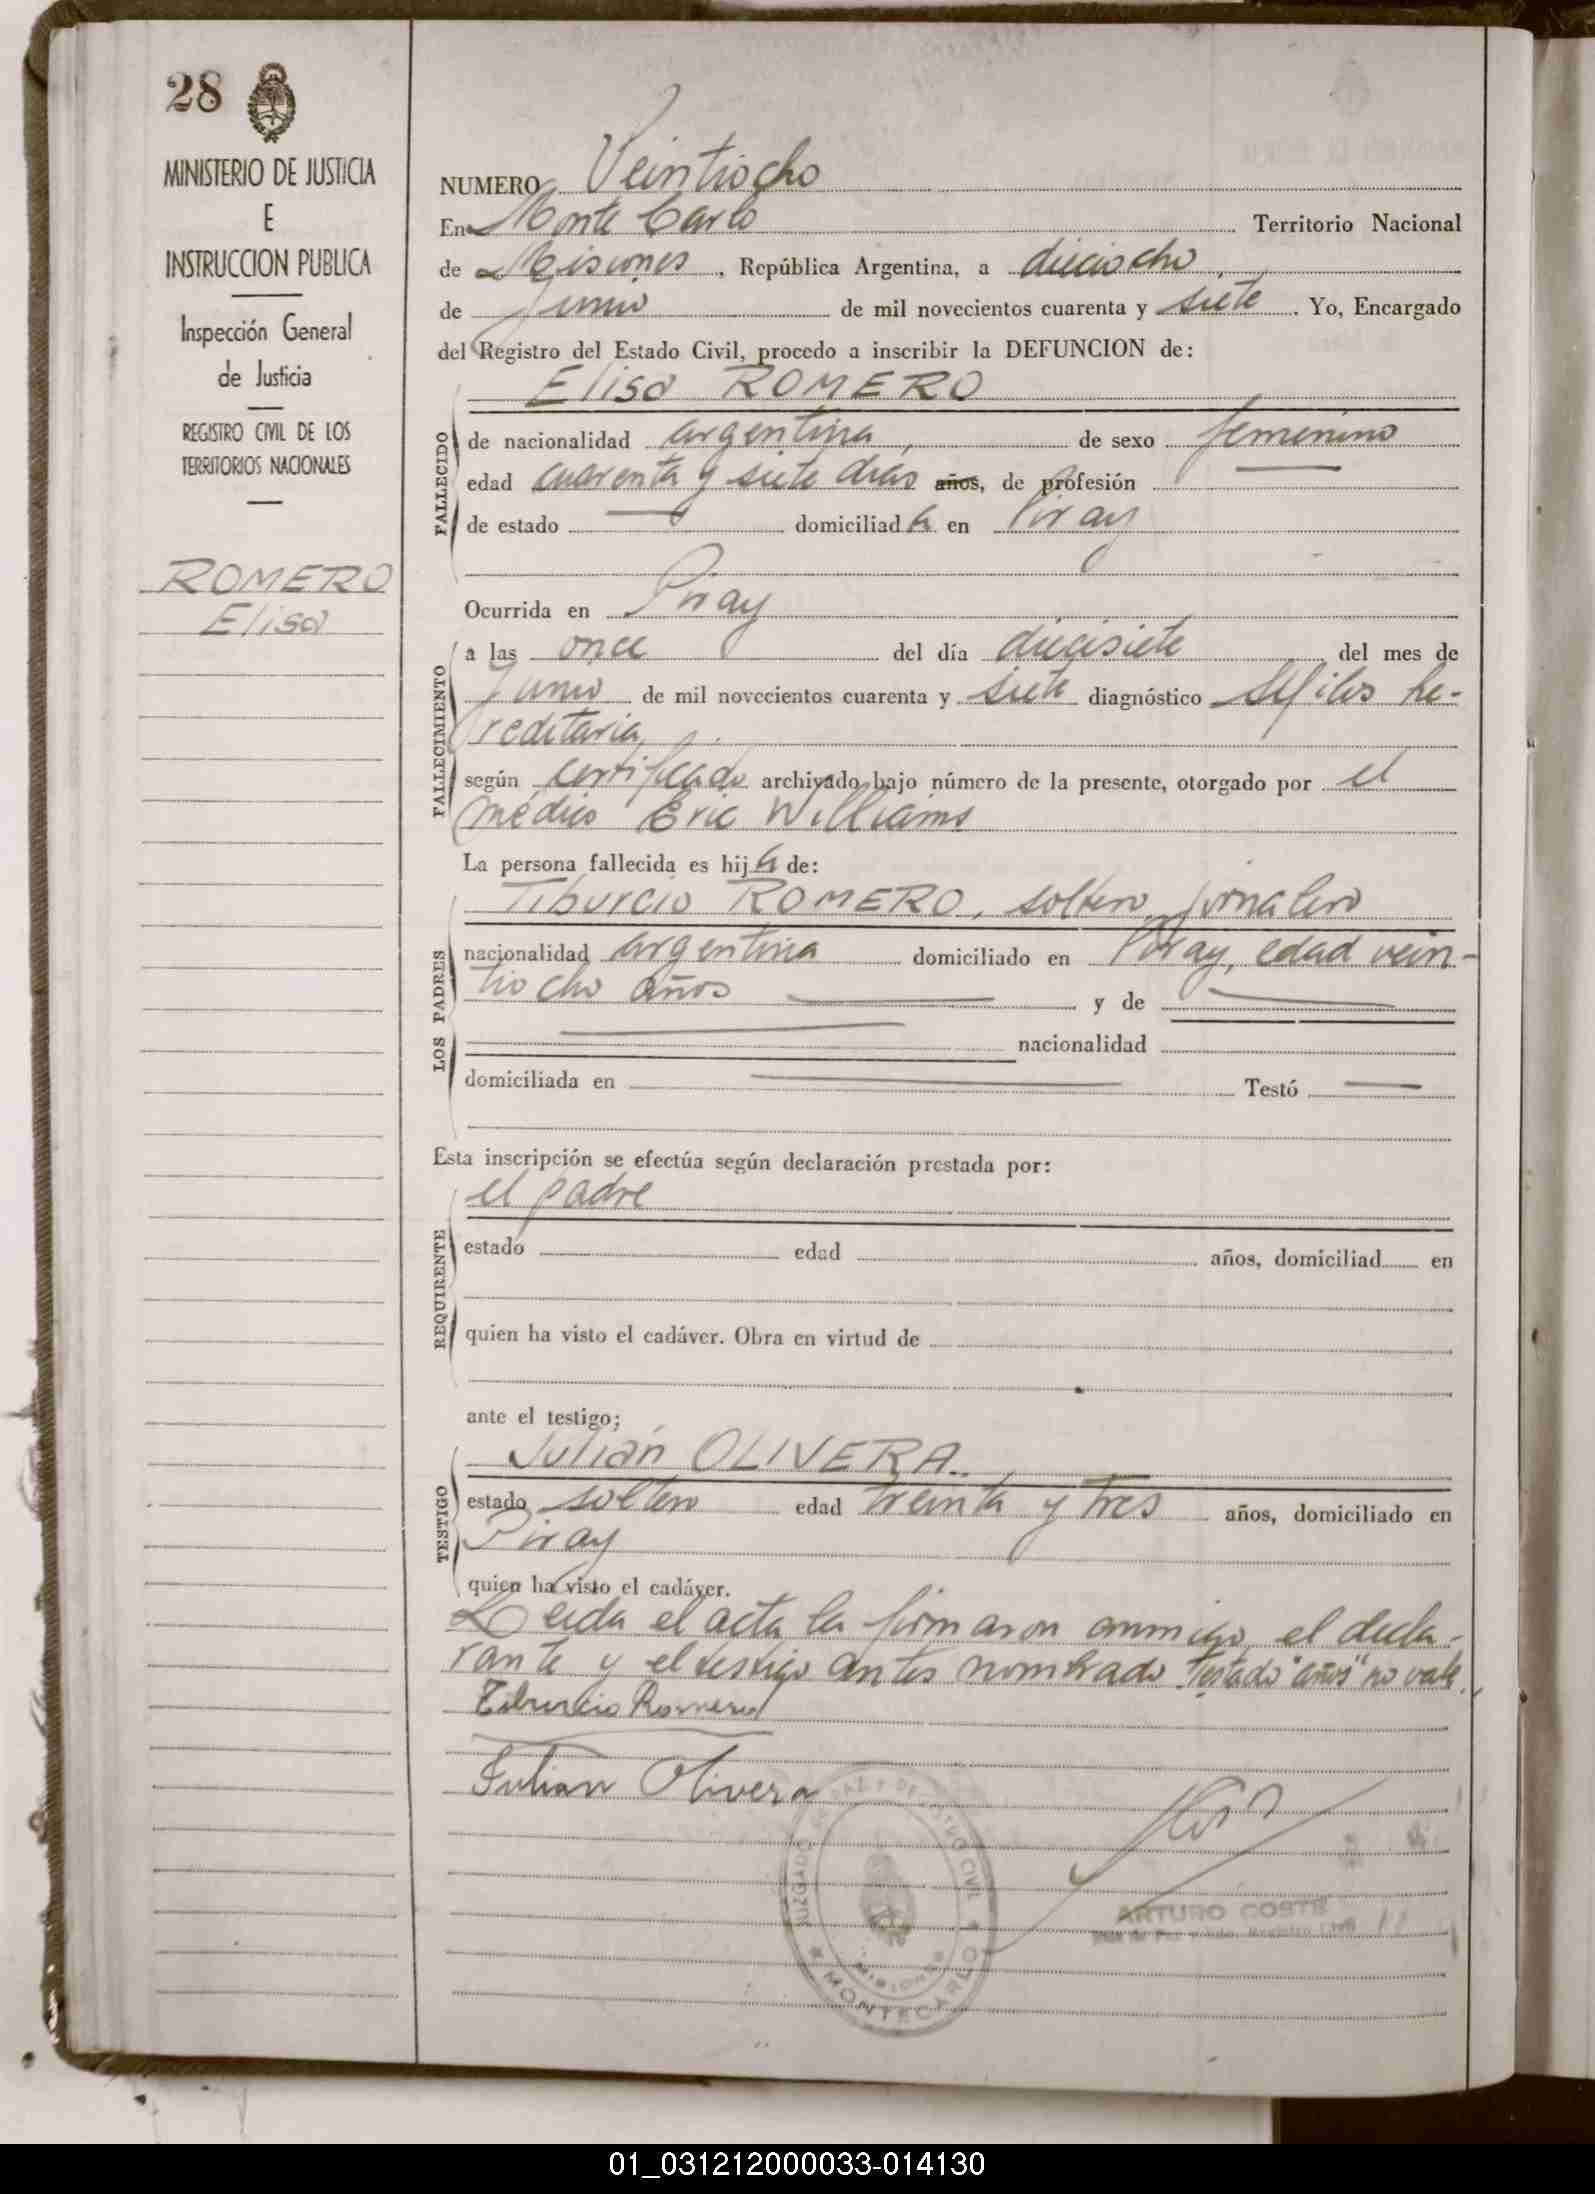 28
MINISTERIO DE JUSTICIA
E
INSTRUCCION PUBLICA
Inspección General
de Justicia
REGISTRO CIVIL DE LOS
TERRITORIOS NACIONALES
ROMERO
Elisa
NUMERO Veintiocho
En Monte Carlo Territorio Nacional
de Misiones, República Argentina, a dieciocho,
de Junio de mil novecientos cuarenta y siete. Yo, Encargado
del Registro del Estado Civil, procedo a inscribir la DEFUNCION de:
Elisa ROMERO
FALLECIDO
de nacionalidad argentina, de sexo femenino
edad cuarenta y siete días años, de profesión
de estado domiciliada en Piray
Ocurrida en Piray
FALLECIMIENTO
a las once del día diecisiete del mes de
Junio de mil novecientos cuarenta y siete diagnóstico sífilis he-
reditaria,
según certificado archivado bajo número de la presente, otorgado por el
médico Eric Williams
La persona fallecida es hija de:
LOS PADRES
Tiburcio ROMERO, soltero, jornalero
nacionalidad argentina domiciliado en Piray, edad vein-
tiocho años y de
nacionalidad
domiciliada en Testó
Esta inscripción se efectúa según declaración prestada por:
REQUIRENTE
el padre
estado edad años, domiciliad en
quien ha visto el cadáver. Obra en virtud de
ante el testigo;
TESTIGO
Julián OLIVERA.
estado soltero edad treinta y tres años, domiciliado en
Piray
quien ha visto el cadáver.
Leida el acta la firmaron conmigo, el decla-
rante y el testigo antes nombrado. Testado "años" no vale.
Tiburcio Romero
Julian Olivera
JUZGADO DE PAZ Y DE REGISTRO CIVIL
MISIONES
MONTECARLO
ARTURO COSTE
01_031212000033-014130